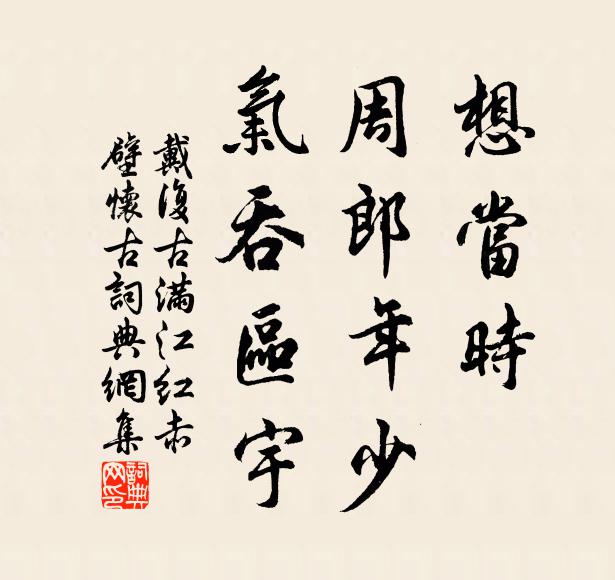 想當時
周郎年少
氣吞區宇
戴復古滿江紅赤
壁懷古詞典網集
詞典
网印